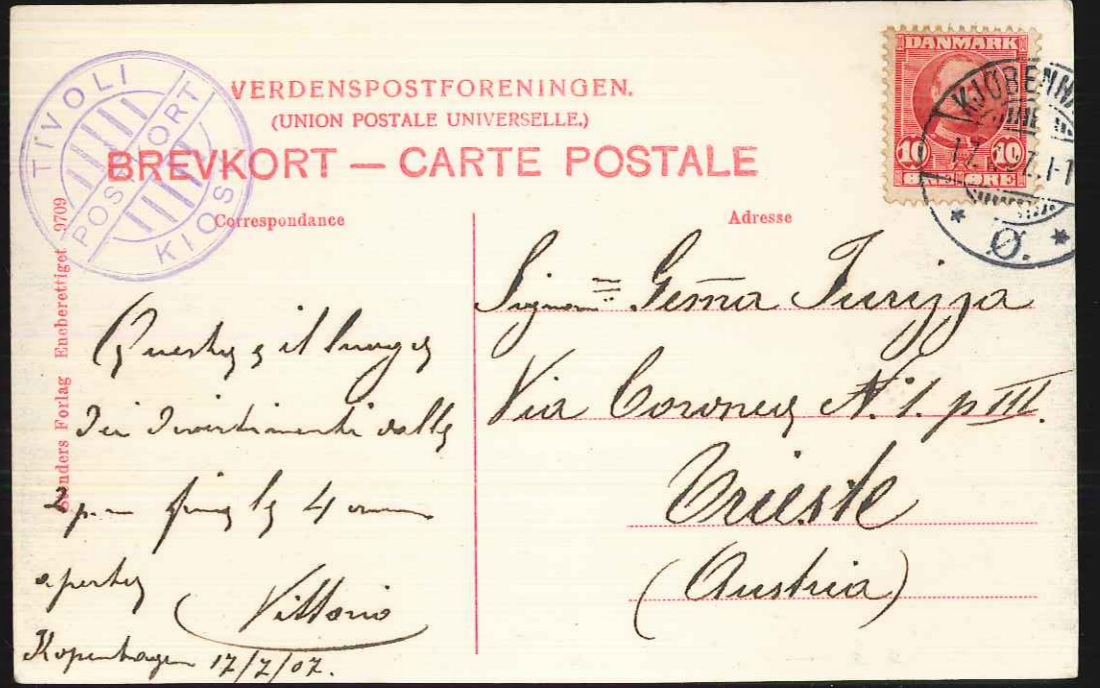 TIVOLI
POSTKORT
KIOSK
VERDENSPOSTFORENINGEN.
(UNION POSTALE UNIVERSELLE.)
BREVKORT — CARTE POSTALE
DANMARK
10 10
ØRE
KJØBENH
Ø.
Correspondance
Adresse
Stenders Forlag Eneberettiget 9709
Questo è il luogo
dei divertimenti dalle
2 p.m fino le 4
aperto
Vittorio
Kopenhagen 17/7/07.
Gemma
Via Coroneo N. 1. p III.
Trieste
(Austria)